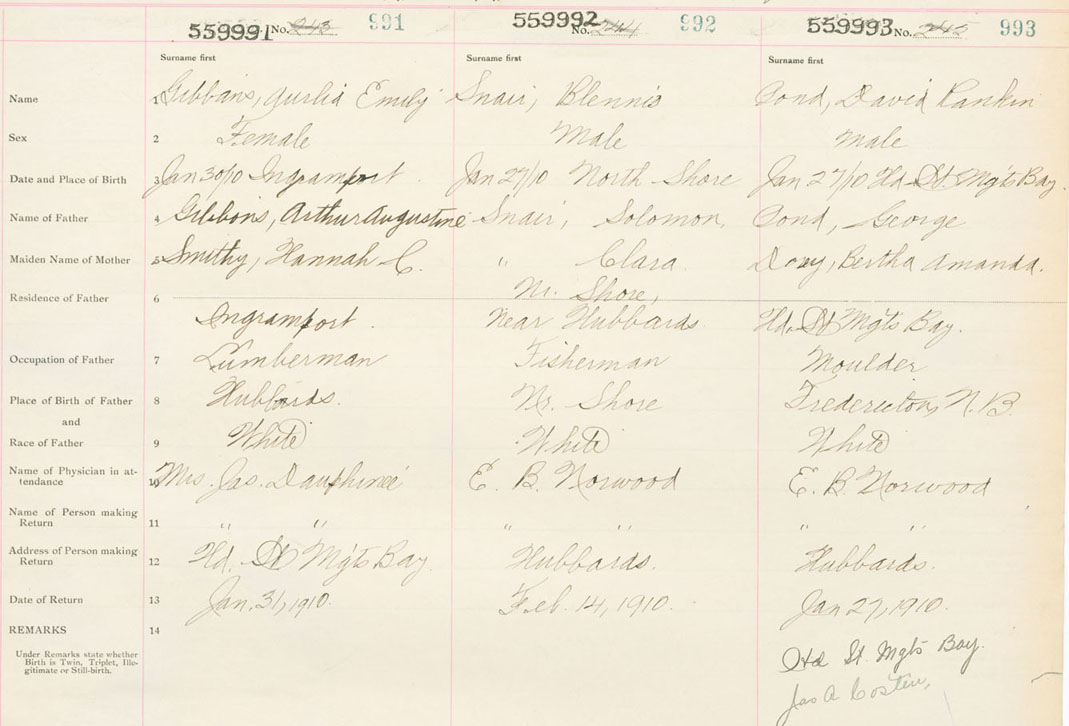 559991 No. 243 991 559992 No. 244 992 559993 No. 245 993
Surname first Surname first Surname first
Name 1 Gibbons, Aurlia Emily Snair, Blennis Pond, David Rankin
Sex 2 Female Male Male
Date and Place of Birth 3 Jan 30/10 Ingramport. Jan 27/10 North Shore Jan 27/10 Hd. St. Mgts Bay.
Name of Father 4 Gibbons, Arthur Augustine Snair, Solomon, Pond, George
Maiden Name of Mother 5 Smithy, Hannah C. " Clara. Dory, Bertha Amanda.
Nr. Shore,
Residence of Father 6
Ingramport. Near Hubbards. Hd. St Mgts Bay.
Occupation of Father 7 Lumberman Fisherman Moulder
Place of Birth of Father 8 Hubbards. Nr. Shore Fredericton, N. B.
and
Race of Father 9 White White White
Name of Physician in at-
tendance 10 Mrs. Jas. Dauphinee E. B. Norwood E. B. Norwood
Name of Person making
Return 11 " " " " " "
Address of Person making
Return 12 Hd. St Mgts Bay. Hubbards. Hubbards.
Date of Return 13 Jan. 31, 1910. Feb. 14, 1910. Jan 27, 1910.
REMARKS 14
Under Remarks state whether
Birth is Twin, Triplet, Ille-
gitimate or Still-birth.
Hd St. Mgts Bay.
Jas A